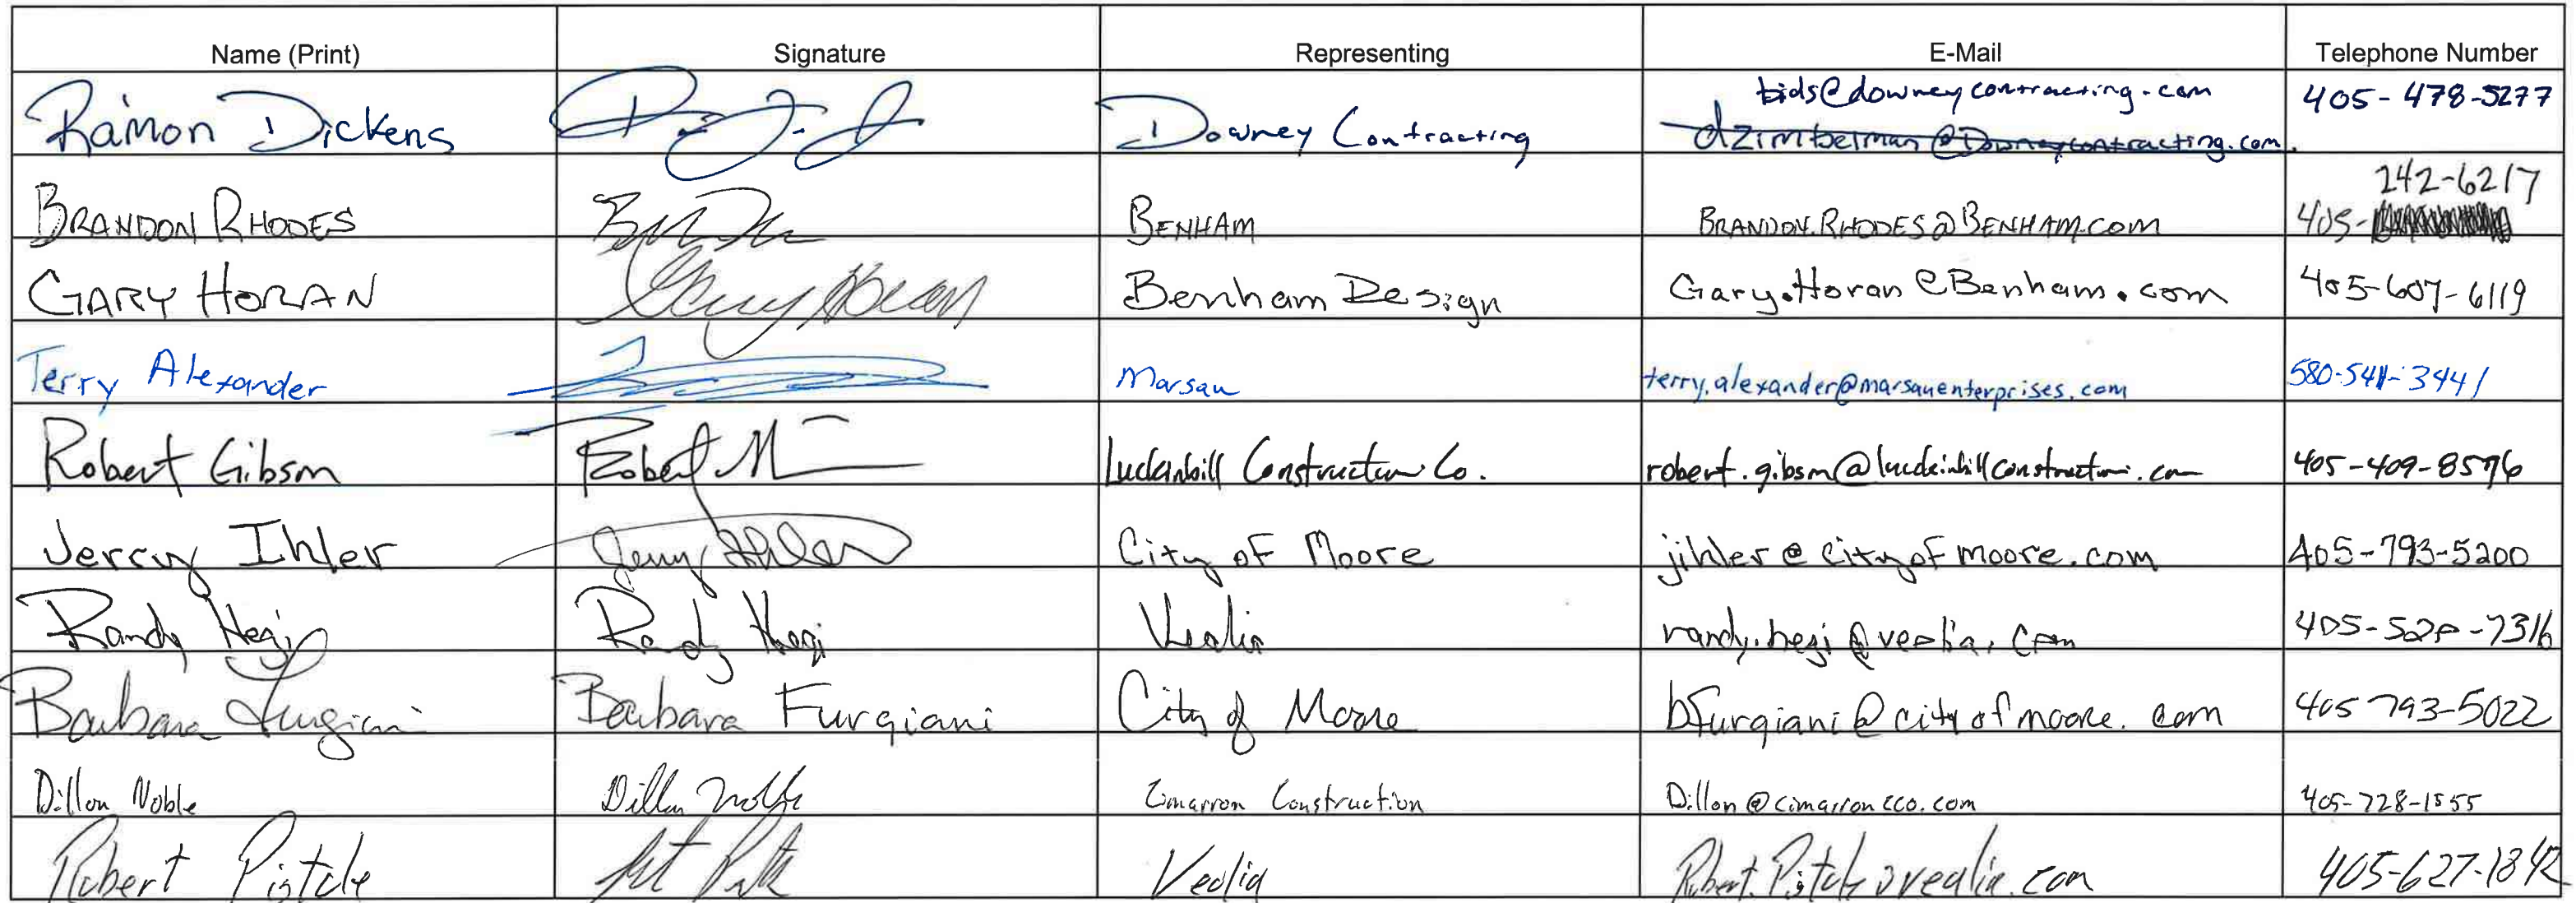 Name (Print) Signature Representing E-Mail Telephone Number
Ramon Dickens Downey Contracting bids@downeycontracting.com 405-478-5277
dzimbelman@Downeycontracting.com
BRANDON RHODES BENHAM BRANDON.RHODES@BENHAM.COM 405- 242-6217
GARY HORAN Gary Horan Benham Design Gary.Horan@Benham.com 405-607-6119
Terry Alexander Marsau terry.alexander@marsauenterprises.com 580-541-3441
Robert Gibson Robert Luckinbill Construction Co. robert.gibson@luckinbillconstruction.com 405-409-8576
Jerry Ihler Jerry Ihler City of Moore jihler@cityofmoore.com 405-793-5200
Randy Hegi Randy Hegi Veolia randy.hegi@veolia.com 405-520-7316
Barbara Furgiani Barbara Furgiani City of Moore bfurgiani@cityofmoore.com 405 793-5022
Dillon Noble Dillon Noble Cimarron Construction Dillon@cimarroncco.com 405-728-1555
Robert Pistole Veolia Robert.Pistole@veolia.com 405-627-1842